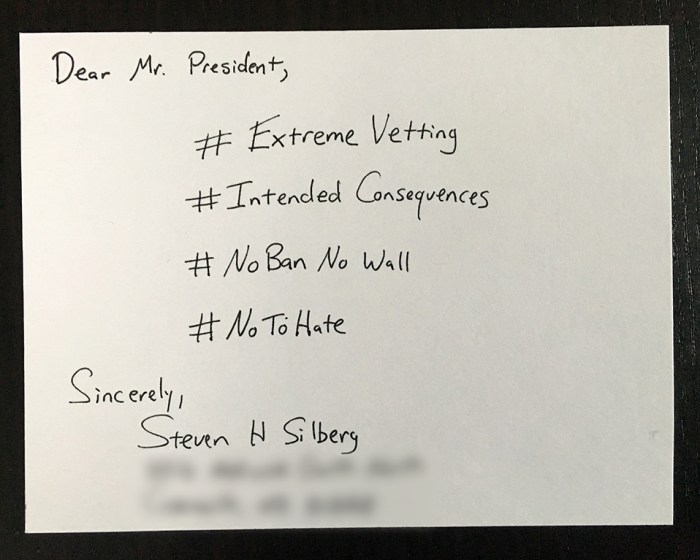 Dear Mr. President,
# Extreme Vetting
# Intended Consequences
# No Ban No Wall
# No To Hate
Sincerely,
Steven H Silberg